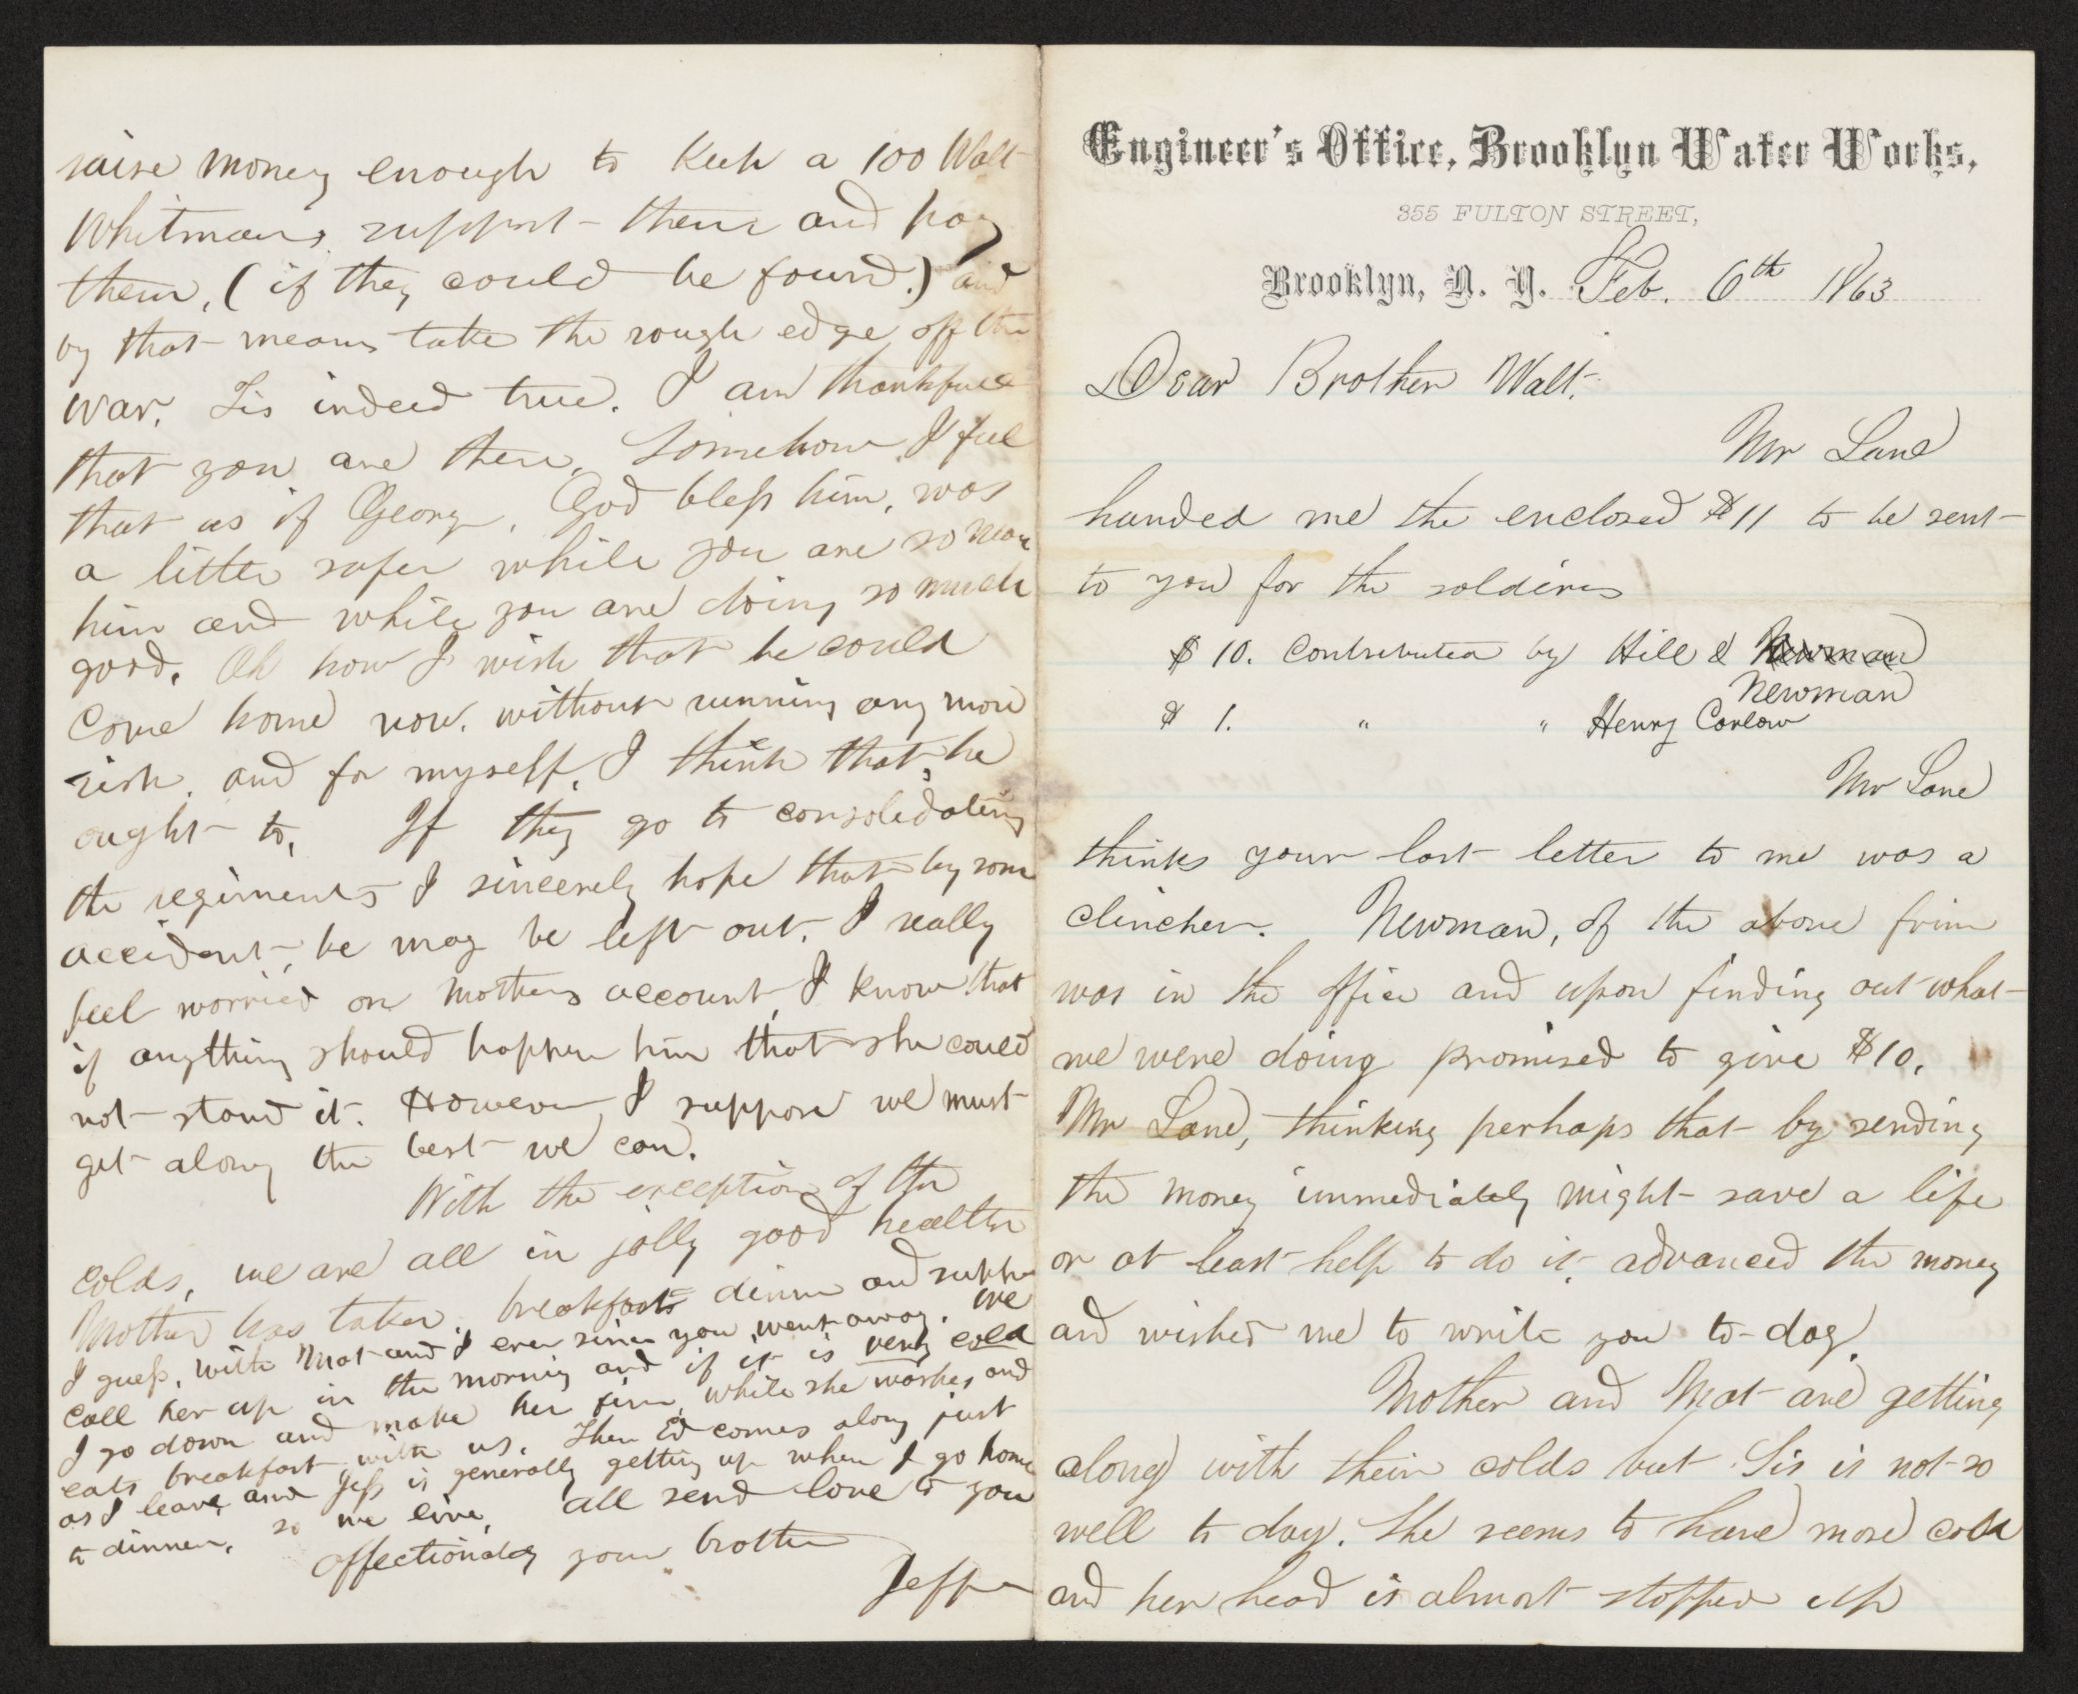 Engineer's Office, Brooklyn Water Works,
355 FULTON STREET,
Brooklyn, N. Y. Feb. 6th 1863
Dear Brother Walt,
Mr Lane
handed me the enclosed $11 to be sent
to you for the soldiers
$ 10. Contributed by Hill & Newman
Newman
$ 1. " " Henry Carlow
Mr Lane
thinks your last letter to me was a
clincher. Newman, of the above firm
was in the office and upon finding out what
we were doing promised to give $10.
Mr Lane, thinking perhaps that by sending
the money immediately might save a life
or at least help to do it, advanced the money
and wished me to write you to-day.
Mother and Mat are getting
along with their colds but Sis is not so
well to day. She seems to have more cold
and her head is almost stopped up
raise money enough to keep a 100 Walt
Whitmans, support them and pay
them, (if they could be found.) and
by that means take the rough edge off the
war. Tis indeed true. I am thankful
that you are there, Somehow I feel
that as if George, God bless him, was
a little safer while you are so near
him and while you are doing so much
good. Oh how I wish that he could
come home now. without running any more
risk. and for myself, I think that he
ought to, If they go to consolidating
the regiments I sincerely hope that by some
accident, he may be left out. I really
feel worried on Mothers account, I know that
if anything should happen him that she could
not stand it. However I suppose we must
get along the best we can.
With the exception of the
colds, we are all in jolly good health
Mother has taken breakfast dinner and supper
I guess, with Mat and I ever since you went away. We
call her up in the morning and if it is very cold
I go down and make her fire, while she washes and
eats breakfast with us. Then Ed comes along just
as I leave and Jess is generally getting up when I go home
to dinner. so we live, all send love to you
affectionately your brother
Jeff